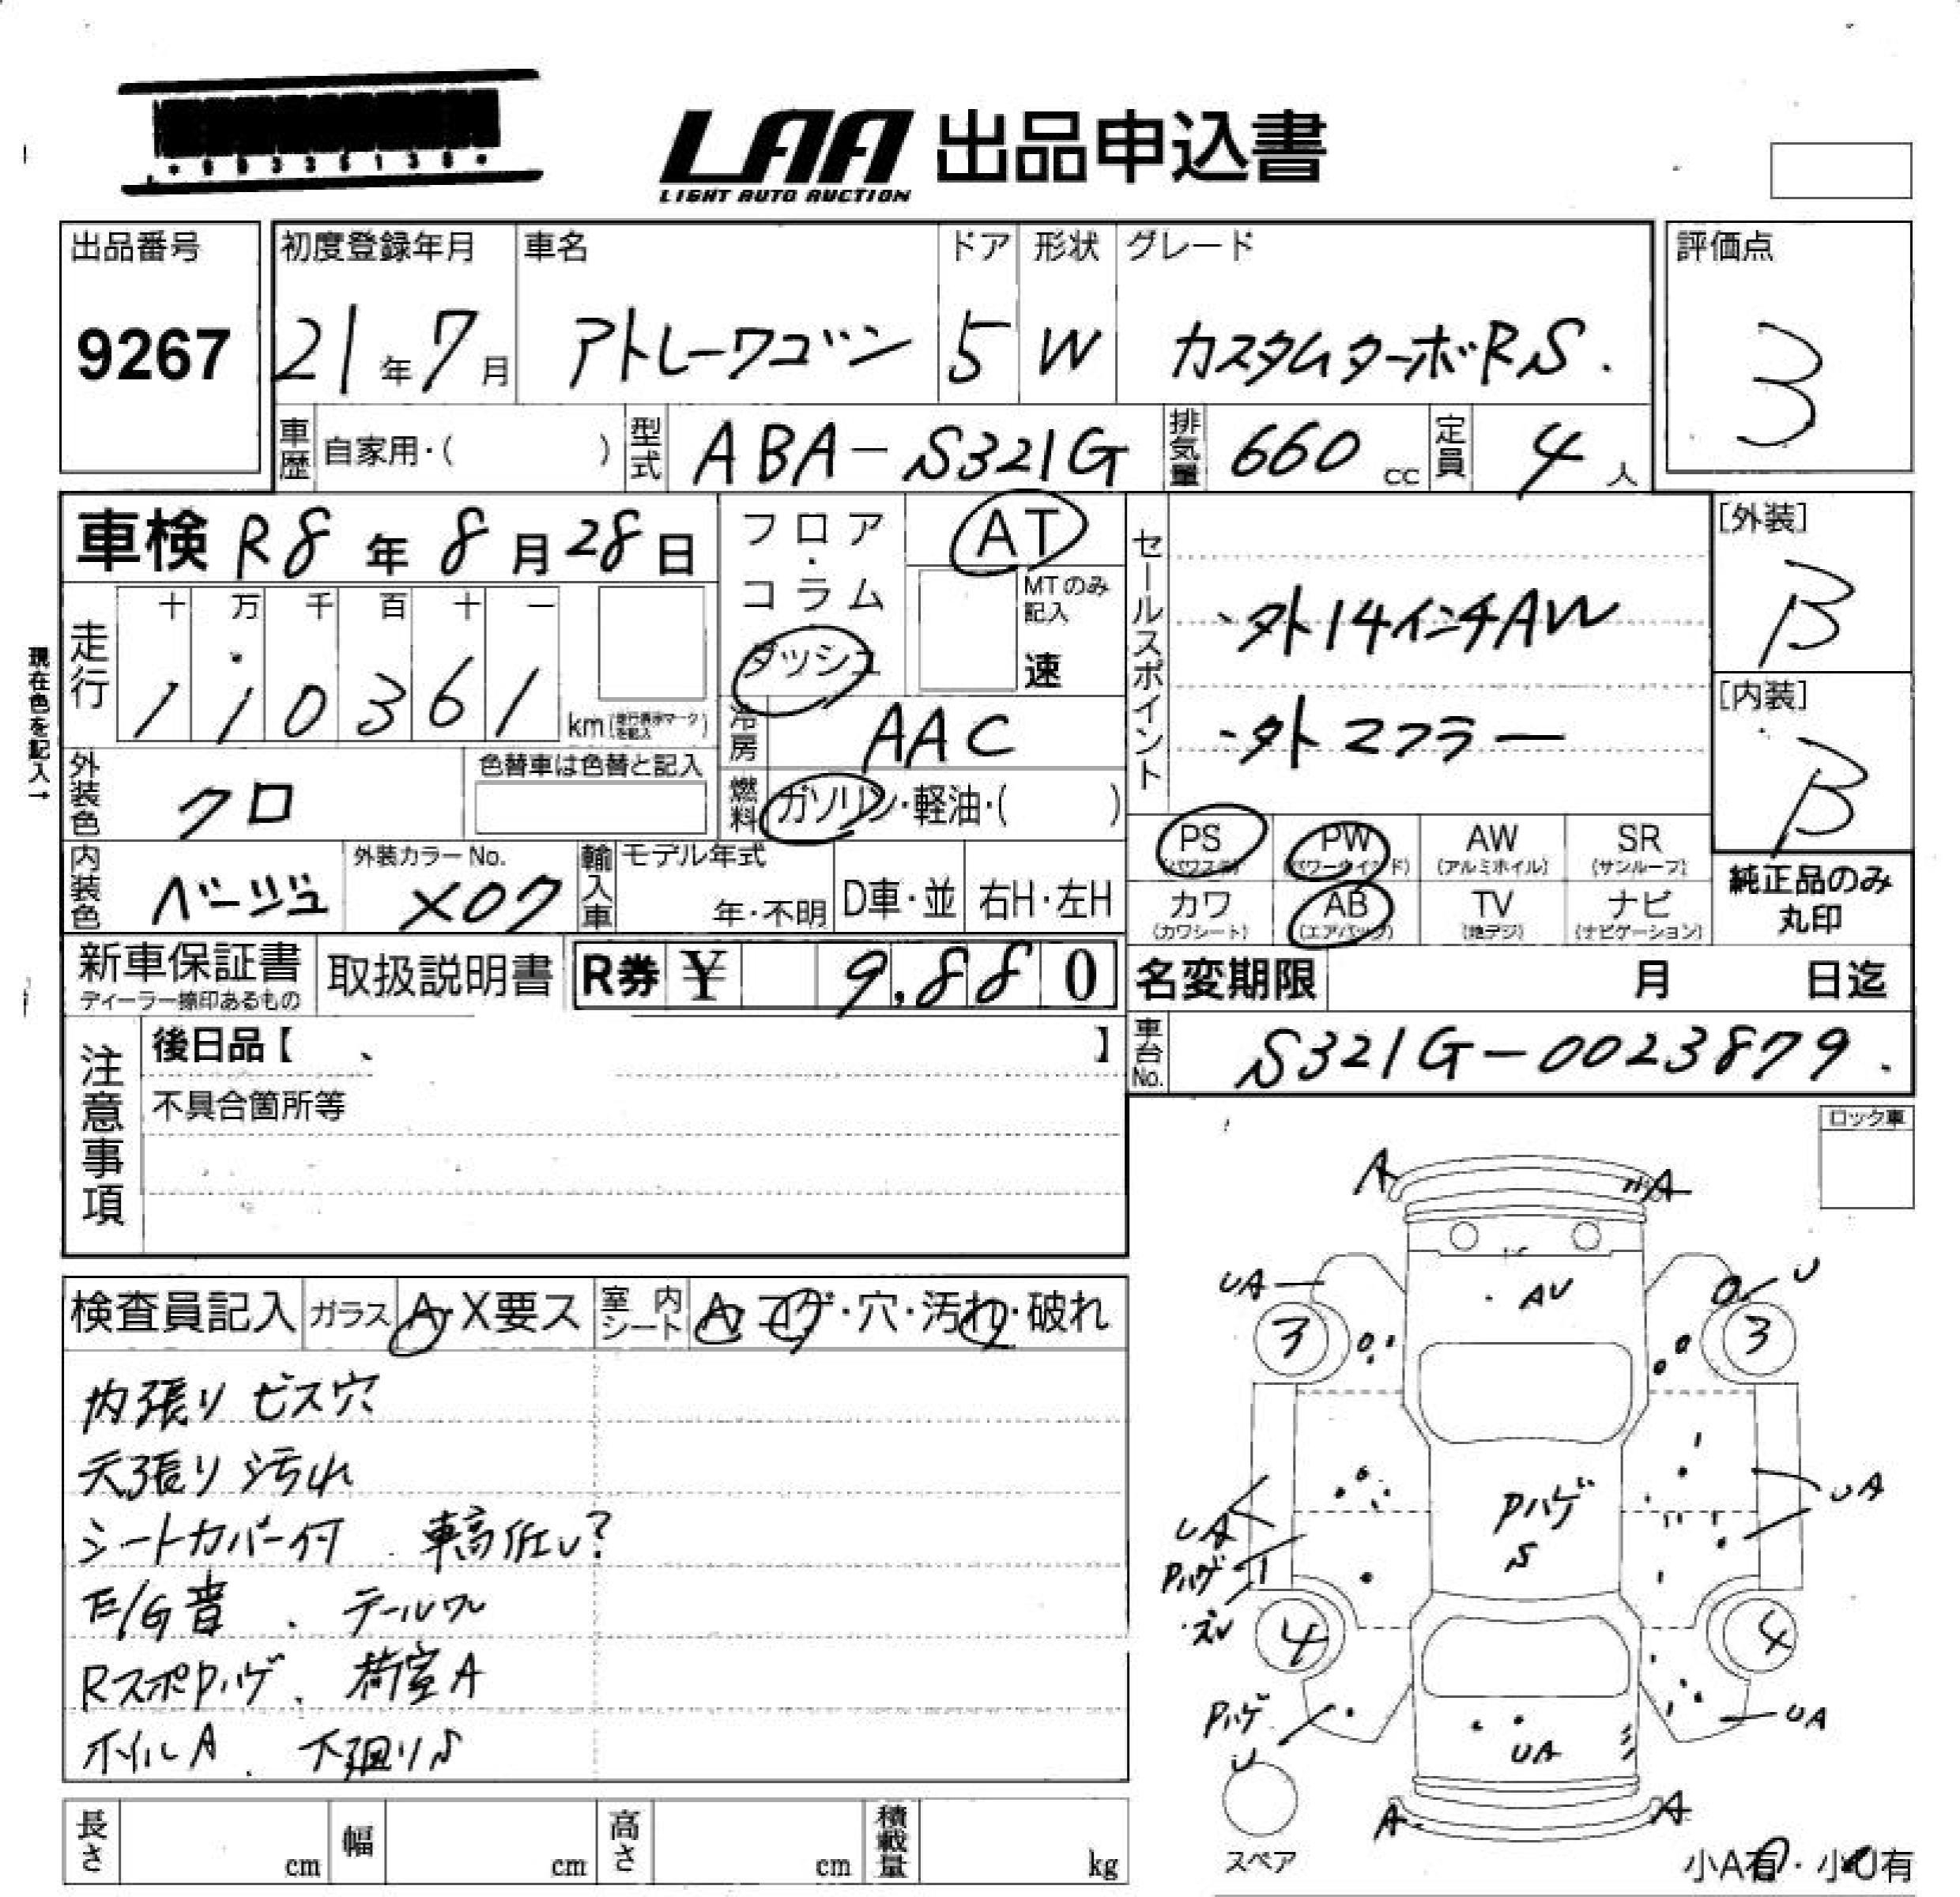 LAA 出品申込書
LIGHT AUTO AUCTION
出品番号
9267
初度登録年月 車名 ドア 形状 グレード
21年7月 アトレーワゴン 5 W カスタムターボRS.
評価点
3
車歴 自家用・( ) 型式 ABA-S321G 排気量 660cc 定員 4人
車検 R8年8月28日
フロア・コラム
ダッシュ
AT
MTのみ記入
速
走行 十 万 千 百 十 一
110361 km
現在色を記入→
冷房 AAC
外装色 クロ 色替車は色替と記入
燃料 ガソリン・軽油・( )
内装色 ベージュ 外装カラーNo. X07 輸入車 モデル年式 年・不明 D車・並 右H・左H
セールスポイント
・外14インチAW
・外マフラー
[外装]
B
[内装]
B
PS (パワステ) PW (パワーウインド) AW (アルミホイル) SR (サンルーフ)
カワ (カワシート) AB (エアバッグ) TV (地デジ) ナビ (ナビゲーション)
純正品のみ
丸印
新車保証書 取扱説明書 R券 ¥ 9,880
ディーラー捺印あるもの
名変期限 月 日迄
車台No. S321G-0023879.
注意事項
後日品【 、 】
不具合箇所等
ロック車
検査員記入 ガラス A・X要ス 室内シート A・コゲ・穴・汚れ・破れ
内張りビス穴
天張り汚れ
シートカバー付 車高低い?
E/G音 . テールワレ
RスポPハゲ、荷室A
ホイルA . 下廻りS
A A
UA U
AV
3 3
PハゲS
UA UA
Pハゲ
4 4
Pハゲ
U
UA UA
A A
スペア
小A有・小U有
長さ cm 幅 cm 高さ cm 積載量 kg